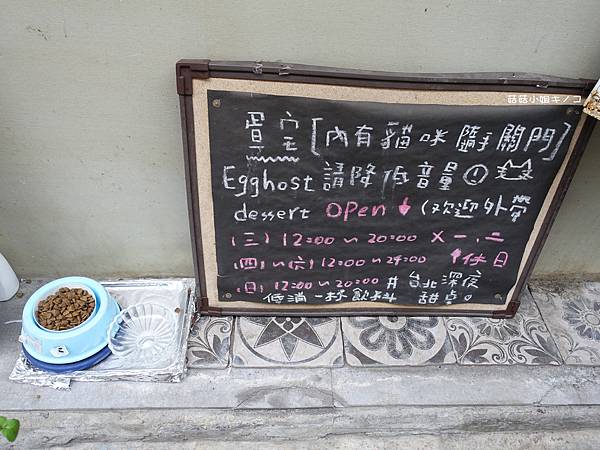 菇菇小姐キノコ
畳宅[內有貓咪 隨手關門]
Egghost 請降低音量
dessert OPen ↓ (欢迎外帶
(三) 12:00 ~ 20:00 × 一、二
(四)~(六) 12:00 ~ 24:00 休日
(日) 12:00 ~ 20:00 # 台北深夜
低消一杯飲料 甜点。